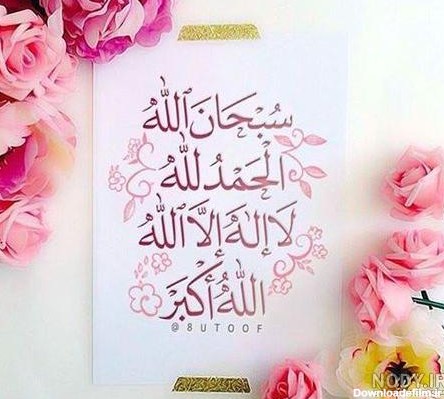 سُبْحَانَ ٱللَّهُ
الْحَمْدُ لِلَّهِ
لَا إِلَهَ إِلَّا ٱللَّهُ
اللَّهُ أَكْبَرُ
@8UTOOF
NODY.IR
Downloadefilm.ir